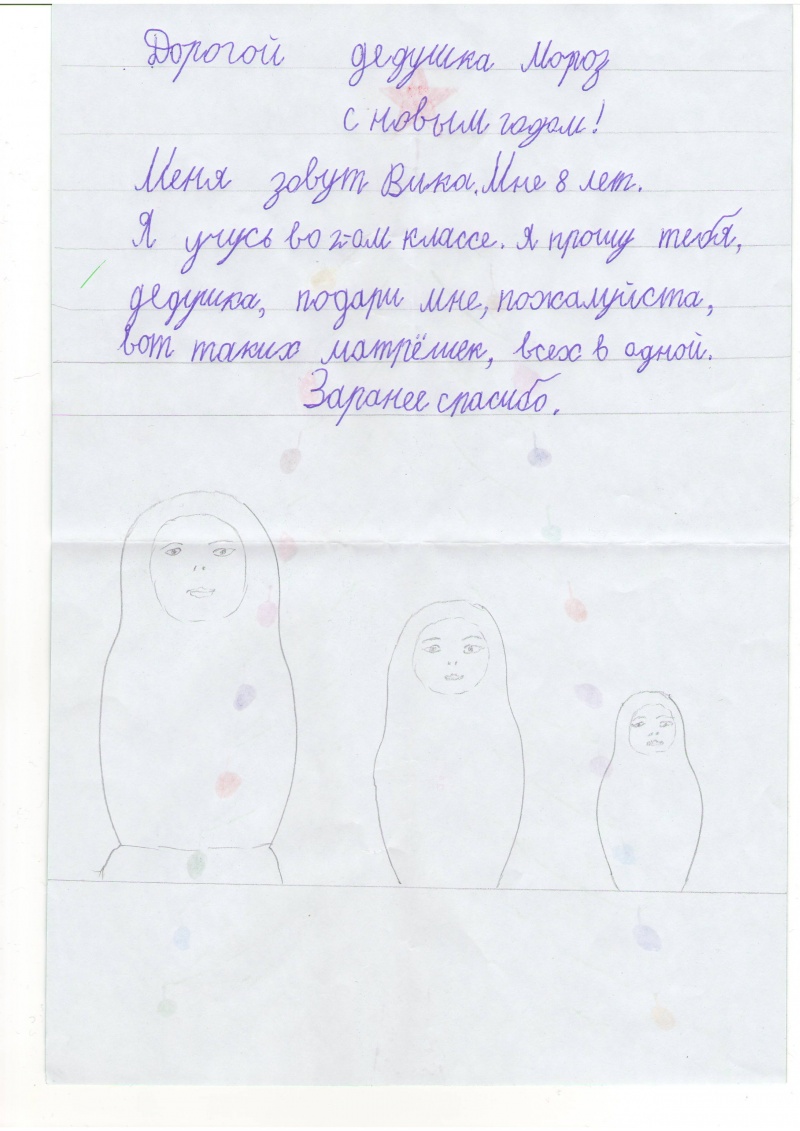 Дорогой дедушка Мороз
с новым годом!
Меня зовут Вика. Мне 8 лет.
Я учусь во 2-ом классе. Я прошу тебя,
дедушка, подари мне, пожалуйста,
вот таких матрёшек, всех в одной.
Заранее спасибо.